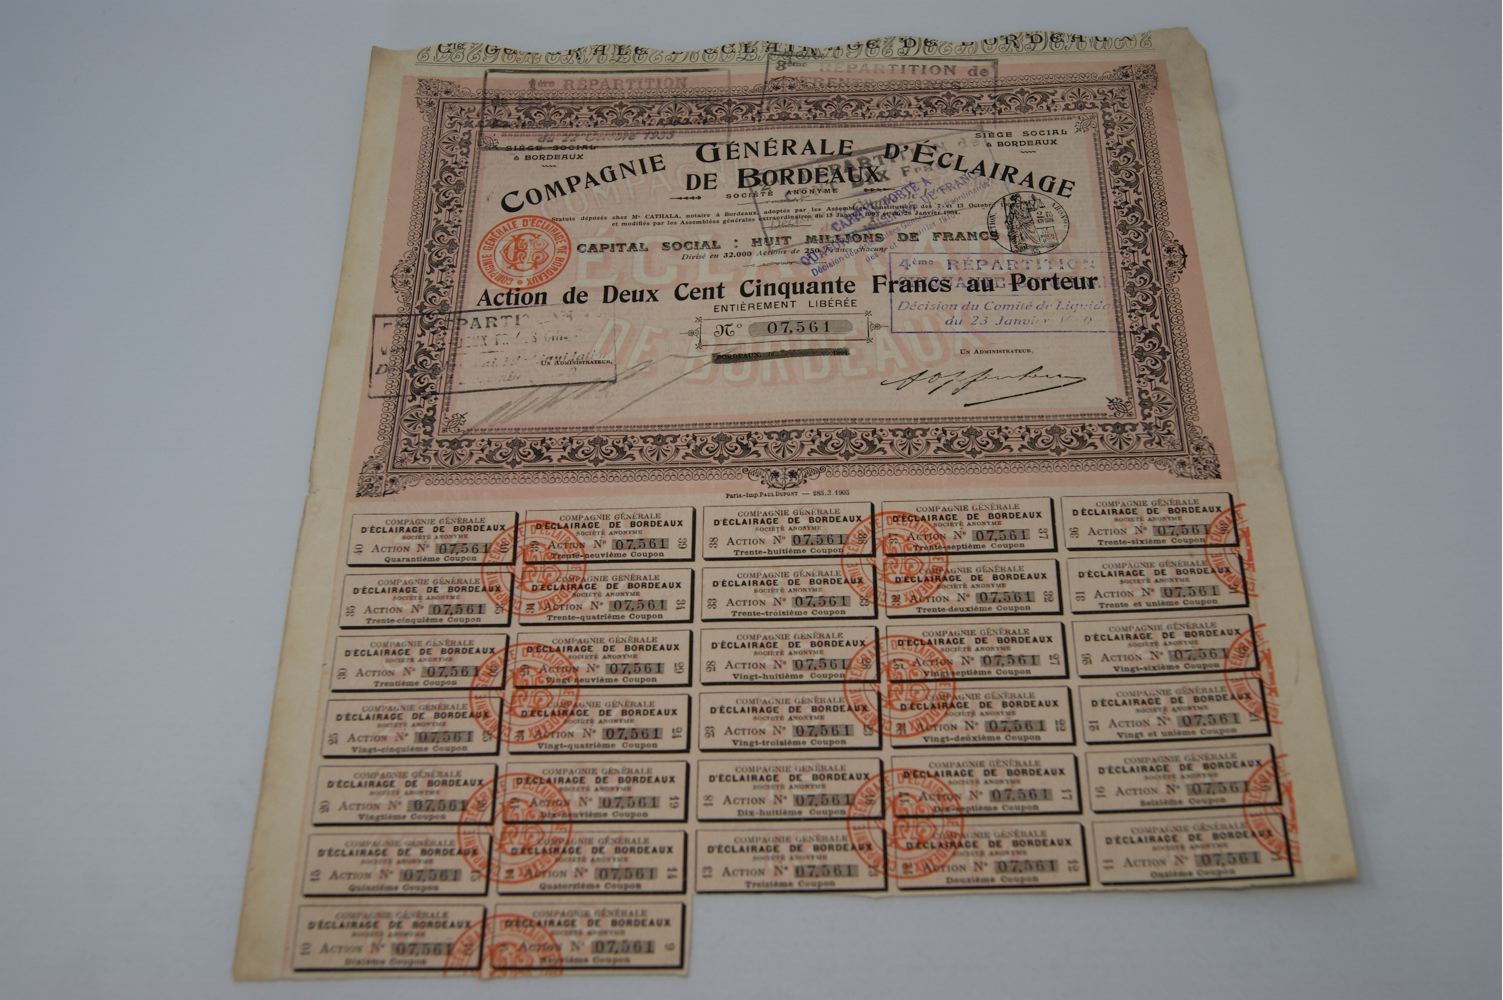 Cie GÉNÉRALE D'ÉCLAIRAGE DE BORDEAUX
1ère RÉPARTITION
3ème RÉPARTITION de
TRENTE FRANCS
SIÈGE SOCIAL
à BORDEAUX
SIÈGE SOCIAL
à BORDEAUX
COMPAGNIE GÉNÉRALE D'ÉCLAIRAGE
DE BORDEAUX
SOCIÉTÉ ANONYME
Statuts déposés chez Me CATHALA, notaire à Bordeaux, adoptés par les Assemblées constitutives des 7 et 13 Octobre
et modifiés par les Assemblées générales extraordinaires du 15 Janvier 1903 et du 28 Janvier 1904.
CAPITAL SOCIAL : HUIT MILLIONS DE FRANCS
Divisé en 32.000 Actions de 250 Francs chacune
COMPAGNIE GÉNÉRALE D'ÉCLAIRAGE DE BORDEAUX
CAPITAL PORTÉ A
4ème RÉPARTITION
CINQUANTE
Décision du Comité de Liquida
du 23 Janvier
Action de Deux Cent Cinquante Francs au Porteur
ENTIÈREMENT LIBÉRÉE
No 07,561
UN ADMINISTRATEUR,
BORDEAUX, le 1904
UN ADMINISTRATEUR,
Paris.-Imp. PAUL DUPONT — 283.3.1905
COMPAGNIE GÉNÉRALE
D'ÉCLAIRAGE DE BORDEAUX
SOCIÉTÉ ANONYME
40 ACTION No 07,561
Quarantième Coupon
COMPAGNIE GÉNÉRALE
D'ÉCLAIRAGE DE BORDEAUX
SOCIÉTÉ ANONYME
39 ACTION No 07,561 39
Trente-neuvième Coupon
COMPAGNIE GÉNÉRALE
D'ÉCLAIRAGE DE BORDEAUX
SOCIÉTÉ ANONYME
38 ACTION No 07,561 38
Trente-huitième Coupon
COMPAGNIE GÉNÉRALE
D'ÉCLAIRAGE DE BORDEAUX
SOCIÉTÉ ANONYME
37 ACTION No 07,561 37
Trente-septième Coupon
COMPAGNIE GÉNÉRALE
D'ÉCLAIRAGE DE BORDEAUX
SOCIÉTÉ ANONYME
36 ACTION No 07,561 36
Trente-sixième Coupon
COMPAGNIE GÉNÉRALE
D'ÉCLAIRAGE DE BORDEAUX
SOCIÉTÉ ANONYME
35 ACTION No 07,561 35
Trente-cinquième Coupon
COMPAGNIE GÉNÉRALE
D'ÉCLAIRAGE DE BORDEAUX
SOCIÉTÉ ANONYME
34 ACTION No 07,561 34
Trente-quatrième Coupon
COMPAGNIE GÉNÉRALE
D'ÉCLAIRAGE DE BORDEAUX
SOCIÉTÉ ANONYME
33 ACTION No 07,561 33
Trente-troisième Coupon
COMPAGNIE GÉNÉRALE
D'ÉCLAIRAGE DE BORDEAUX
SOCIÉTÉ ANONYME
32 ACTION No 07,561 32
Trente-deuxième Coupon
COMPAGNIE GÉNÉRALE
D'ÉCLAIRAGE DE BORDEAUX
SOCIÉTÉ ANONYME
31 ACTION No 07,561
Trente et unième Coupon
COMPAGNIE GÉNÉRALE
D'ÉCLAIRAGE DE BORDEAUX
SOCIÉTÉ ANONYME
30 ACTION No 07,561
Trentième Coupon
COMPAGNIE GÉNÉRALE
D'ÉCLAIRAGE DE BORDEAUX
SOCIÉTÉ ANONYME
29 ACTION No 07,561 29
Vingt-neuvième Coupon
COMPAGNIE GÉNÉRALE
D'ÉCLAIRAGE DE BORDEAUX
SOCIÉTÉ ANONYME
28 ACTION No 07,561 28
Vingt-huitième Coupon
COMPAGNIE GÉNÉRALE
D'ÉCLAIRAGE DE BORDEAUX
SOCIÉTÉ ANONYME
27 ACTION No 07,561 27
Vingt-septième Coupon
COMPAGNIE GÉNÉRALE
D'ÉCLAIRAGE DE BORDEAUX
SOCIÉTÉ ANONYME
26 ACTION No 07,561
Vingt-sixième Coupon
COMPAGNIE GÉNÉRALE
D'ÉCLAIRAGE DE BORDEAUX
SOCIÉTÉ ANONYME
25 ACTION No 07,561 25
Vingt-cinquième Coupon
COMPAGNIE GÉNÉRALE
D'ÉCLAIRAGE DE BORDEAUX
SOCIÉTÉ ANONYME
24 ACTION No 07,561 24
Vingt-quatrième Coupon
COMPAGNIE GÉNÉRALE
D'ÉCLAIRAGE DE BORDEAUX
SOCIÉTÉ ANONYME
23 ACTION No 07,561 23
Vingt-troisième Coupon
COMPAGNIE GÉNÉRALE
D'ÉCLAIRAGE DE BORDEAUX
SOCIÉTÉ ANONYME
22 ACTION No 07,561 22
Vingt-deuxième Coupon
COMPAGNIE GÉNÉRALE
D'ÉCLAIRAGE DE BORDEAUX
SOCIÉTÉ ANONYME
21 ACTION No 07,561
Vingt et unième Coupon
COMPAGNIE GÉNÉRALE
D'ÉCLAIRAGE DE BORDEAUX
SOCIÉTÉ ANONYME
20 ACTION No 07,561 20
Vingtième Coupon
COMPAGNIE GÉNÉRALE
D'ÉCLAIRAGE DE BORDEAUX
SOCIÉTÉ ANONYME
19 ACTION No 07,561 19
Dix-neuvième Coupon
COMPAGNIE GÉNÉRALE
D'ÉCLAIRAGE DE BORDEAUX
SOCIÉTÉ ANONYME
18 ACTION No 07,561 18
Dix-huitième Coupon
COMPAGNIE GÉNÉRALE
D'ÉCLAIRAGE DE BORDEAUX
SOCIÉTÉ ANONYME
17 ACTION No 07,561 17
Dix-septième Coupon
COMPAGNIE GÉNÉRALE
D'ÉCLAIRAGE DE BORDEAUX
SOCIÉTÉ ANONYME
16 ACTION No 07,561 16
Seizième Coupon
COMPAGNIE GÉNÉRALE
D'ÉCLAIRAGE DE BORDEAUX
SOCIÉTÉ ANONYME
15 ACTION No 07,561 15
Quinzième Coupon
COMPAGNIE GÉNÉRALE
D'ÉCLAIRAGE DE BORDEAUX
SOCIÉTÉ ANONYME
14 ACTION No 07,561 14
Quatorzième Coupon
COMPAGNIE GÉNÉRALE
D'ÉCLAIRAGE DE BORDEAUX
SOCIÉTÉ ANONYME
13 ACTION No 07,561 13
Treizième Coupon
COMPAGNIE GÉNÉRALE
D'ÉCLAIRAGE DE BORDEAUX
SOCIÉTÉ ANONYME
12 ACTION No 07,561 12
Douzième Coupon
COMPAGNIE GÉNÉRALE
D'ÉCLAIRAGE DE BORDEAUX
SOCIÉTÉ ANONYME
11 ACTION No 07,561 11
Onzième Coupon
COMPAGNIE GÉNÉRALE
D'ÉCLAIRAGE DE BORDEAUX
SOCIÉTÉ ANONYME
10 ACTION No 07,561
Dixième Coupon
COMPAGNIE GÉNÉRALE
D'ÉCLAIRAGE DE BORDEAUX
SOCIÉTÉ ANONYME
9 ACTION No 07,561 9
Neuvième Coupon